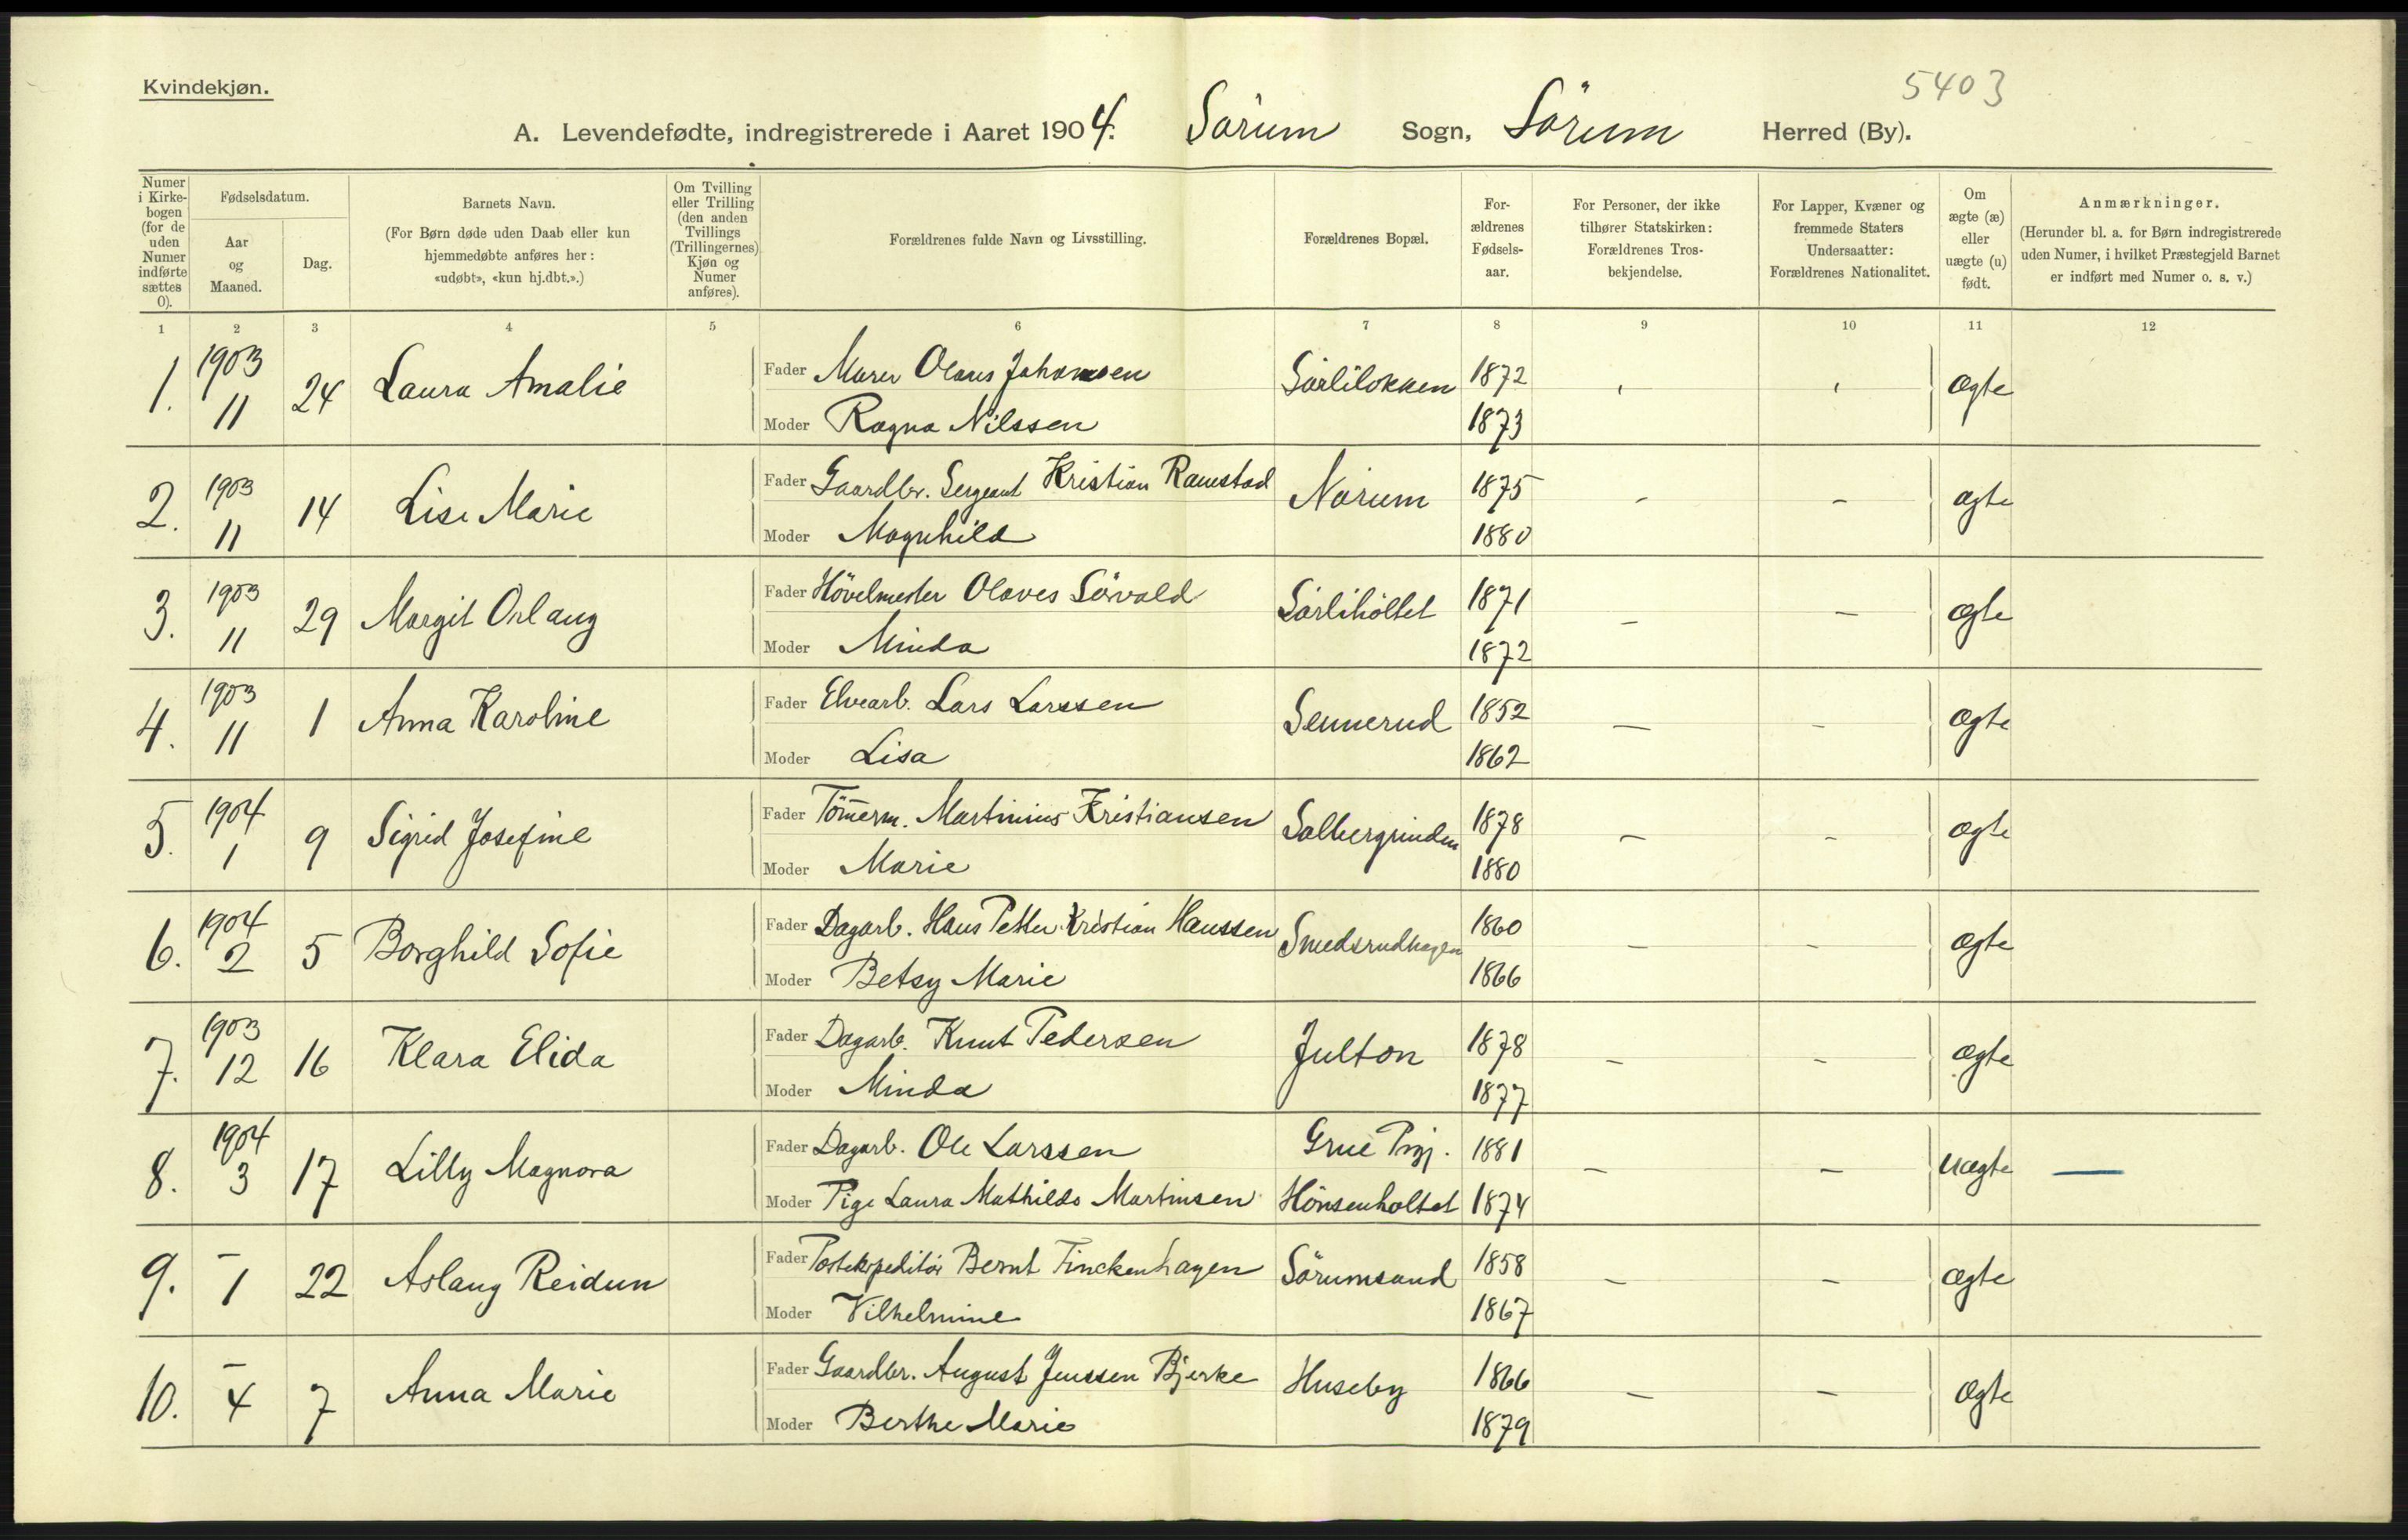 Kvindekjøn.
5403
A. Levendefødte, indregistrerede i Aaret 1904. Sørum Sogn, Sørum Herred (By).
Numer i Kirkebogen (for de uden Numer indførte sættes 0).
Fødselsdatum.
Aar og Maaned.
Dag.
Barnets Navn.
(For Børn døde uden Daab eller kun hjemmedøbte anføres her: «udøbt», «kun hj.dbt.».)
Om Tvilling eller Trilling (den anden Tvillings (Trillingernes) Kjøn og Numer anføres).
Forældrenes fulde Navn og Livsstilling.
Forældrenes Bopæl.
Forældrenes Fødselsaar.
For Personer, der ikke tilhører Statskirken: Forældrenes Trosbekjendelse.
For Lapper, Kvæner og fremmede Staters Undersaatter: Forældrenes Nationalitet.
Om ægte (æ) eller uægte (u) født.
Anmærkninger.
(Herunder bl. a. for Børn indregistrerede uden Numer, i hvilket Præstegjeld Barnet er indført med Numer o. s. v.)
1 2 3 4 5 6 7 8 9 10 11 12
1. 1903 11 24 Laura Amalie Fader Murer Olaves Johansen Sørliløkken 1872 ægte
Moder Ragna Nilssen 1873
2. 1903 11 14 Lise Marie Fader Gaardbr. Sergeant Kristian Ramstad Nørum 1875 - - ægte
Moder Magnhild 1880
3. 1903 11 29 Margit Orlaug Fader Høvelmester Olaves Sørvald Sørliholtet 1871 - - ægte
Moder Minda 1872
4. 1903 11 1 Anna Karoline Fader Elvearb. Lars Larssen Sennerud 1852 - - ægte
Moder Lisa 1862
5. 1904 1 9 Sigrid Josefine Fader Tømerm. Martinius Kristiansen Salbergrinden 1878 - - ægte
Moder Marie 1880
6. 1904 2 5 Borghild Sofie Fader Dagarb. Hans Petter Kristian Hanssen Smedsrudhagen 1860 - - ægte
Moder Betsy Marie 1866
7. 1903 12 16 Klara Elida Fader Dagarb. Knut Pedersen Julton 1878 - - ægte
Moder Minda 1877
8. 1904 3 17 Lilly Magnora Fader Dagarb. Ole Larssen Grue Prgj. 1881 - - uægte —
Moder Pige Laura Mathilde Martinsen Hønsenholtet 1874
9. - 1 22 Aslaug Reidun Fader Postekspeditør Bernt Finckenhagen Sørumsand 1858 - - ægte
Moder Vilhelmine 1867
10. - 4 7 Anna Marie Fader Gaardbr. August Jenssen Bjerke Huseby 1866 - - ægte
Moder Berthe Marie 1879